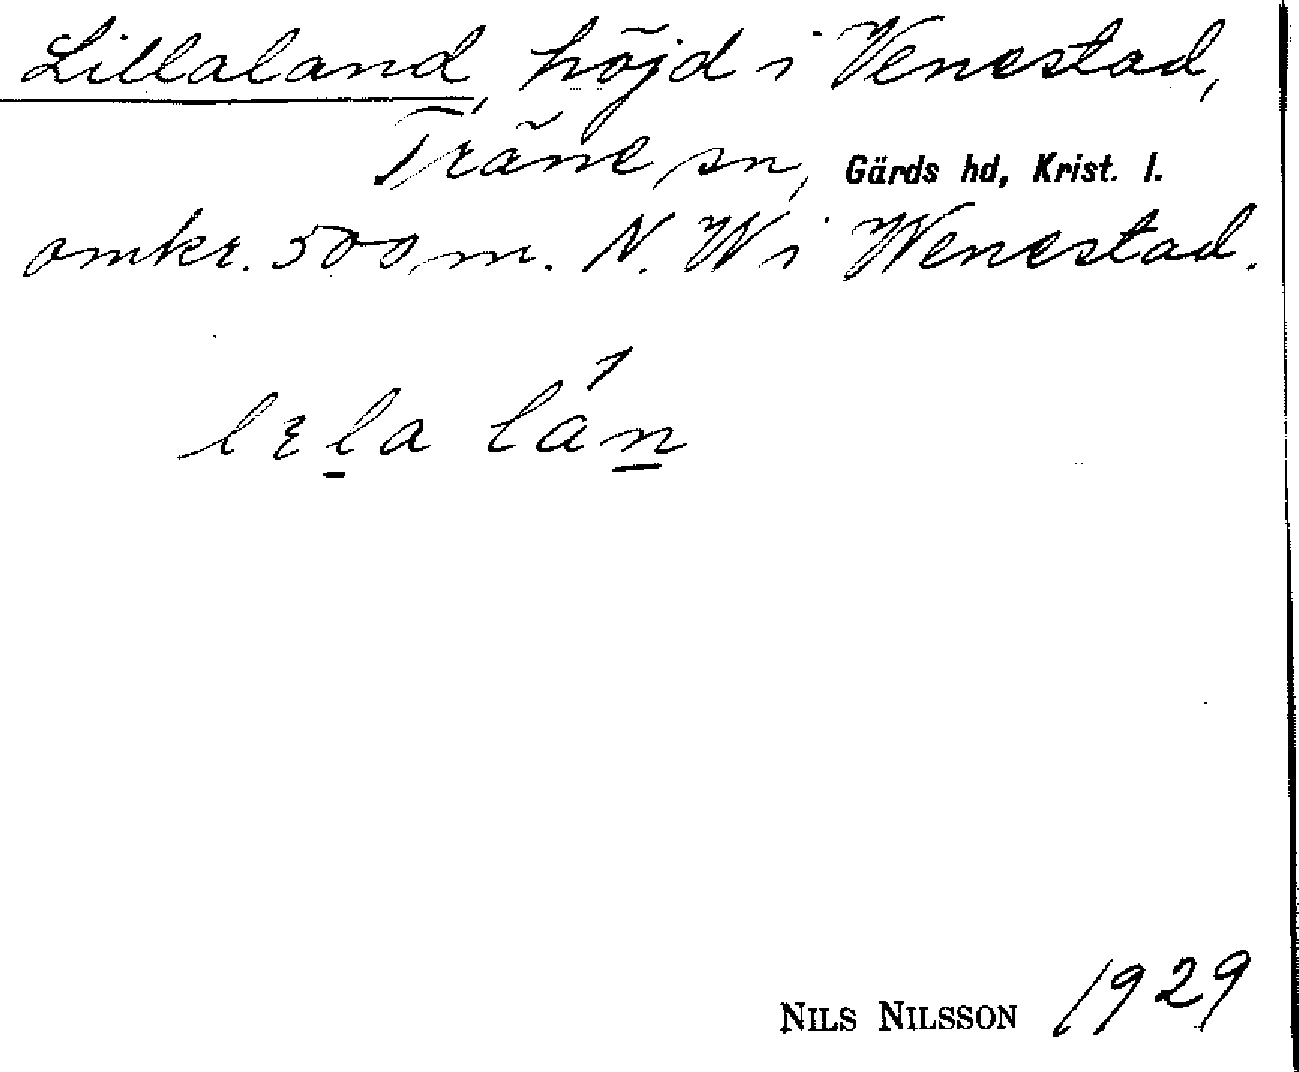 Lillaland, höjd i Venestad,
Träne sn, Gärds hd, Krist. l.
omkr. 500 m. N. W i Wenestad.
lɛla lán
NILS NILSSON 1929